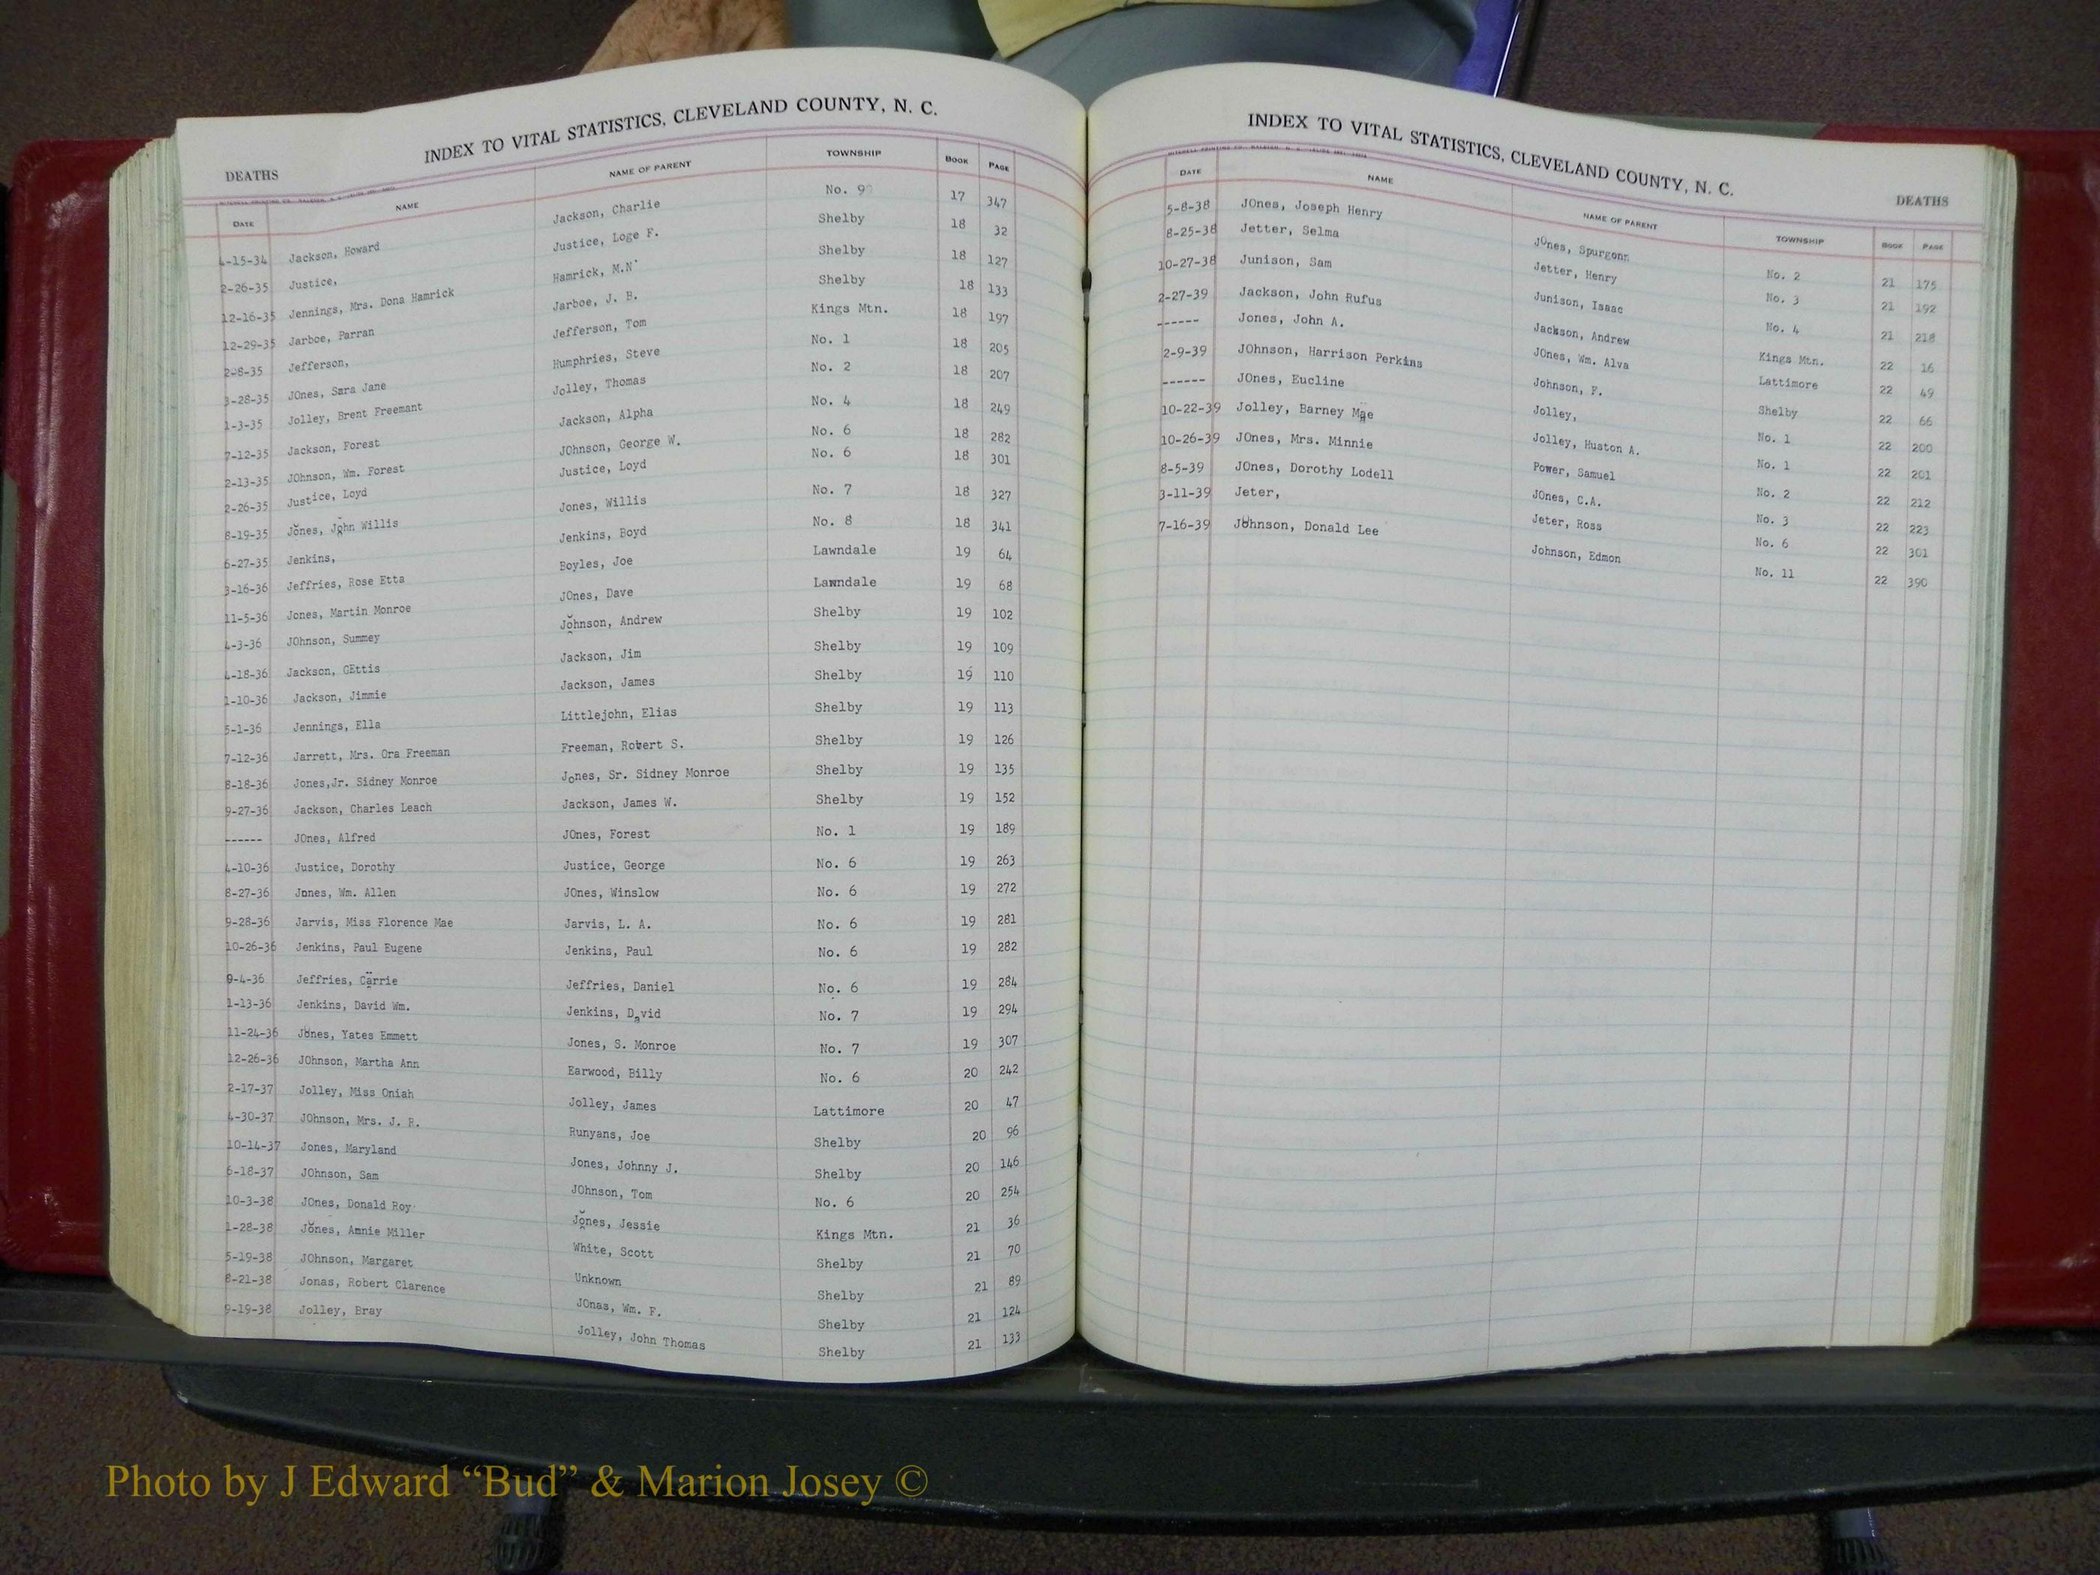 INDEX TO VITAL STATISTICS, CLEVELAND COUNTY, N. C.
DEATHS
DATE NAME NAME OF PARENT TOWNSHIP BOOK PAGE
4-15-34 Jackson, Howard Jackson, Charlie No. 9 17 347
2-26-35 Justice, Justice, Loge F. Shelby 18 32
12-16-35 Jennings, Mrs. Dona Hamrick Hamrick, M.N Shelby 18 127
12-29-35 Jarboe, Parran Jarboe, J. B. Shelby 18 133
2-8-35 Jefferson, Jefferson, Tom Kings Mtn. 18 197
3-28-35 JOnes, Sara Jane Humphries, Steve No. 1 18 205
1-3-35 Jolley, Brent Freemant Jolley, Thomas No. 2 18 207
7-12-35 Jackson, Forest Jackson, Alpha No. 4 18 249
2-13-35 JOhnson, Wm. Forest JOhnson, George W. No. 6 18 282
2-26-35 Justice, Loyd Justice, Loyd No. 6 18 301
8-19-35 Jones, John Willis Jones, Willis No. 7 18 327
6-27-35 Jenkins, Jenkins, Boyd No. 8 18 341
3-16-36 Jeffries, Rose Etta Boyles, Joe Lawndale 19 64
11-5-36 Jones, Martin Monroe JOnes, Dave Lawndale 19 68
4-3-36 JOhnson, Summey Johnson, Andrew Shelby 19 102
4-18-36 Jackson, GEttis Jackson, Jim Shelby 19 109
1-10-36 Jackson, Jimmie Jackson, James Shelby 19 110
5-1-36 Jennings, Ella Littlejohn, Elias Shelby 19 113
7-12-36 Jarrett, Mrs. Ora Freeman Freeman, Robert S. Shelby 19 126
8-18-36 Jones,Jr. Sidney Monroe Jones, Sr. Sidney Monroe Shelby 19 135
9-27-36 Jackson, Charles Leach Jackson, James W. Shelby 19 152
------ JOnes, Alfred JOnes, Forest No. 1 19 189
4-10-36 Justice, Dorothy Justice, George No. 6 19 263
8-27-36 Jones, Wm. Allen JOnes, Winslow No. 6 19 272
9-28-36 Jarvis, Miss Florence Mae Jarvis, L. A. No. 6 19 281
10-26-36 Jenkins, Paul Eugene Jenkins, Paul No. 6 19 282
9-4-36 Jeffries, Carrie Jeffries, Daniel No. 6 19 284
1-13-36 Jenkins, David Wm. Jenkins, David No. 7 19 294
11-24-36 Jones, Yates Emmett Jones, S. Monroe No. 7 19 307
12-26-36 JOhnson, Martha Ann Earwood, Billy No. 6 20 242
2-17-37 Jolley, Miss Oniah Jolley, James Lattimore 20 47
4-30-37 JOhnson, Mrs. J. R. Runyans, Joe Shelby 20 96
10-14-37 Jones, Maryland Jones, Johnny J. Shelby 20 146
6-18-37 JOhnson, Sam JOhnson, Tom No. 6 20 254
10-3-38 JOnes, Donald Roy Jones, Jessie Kings Mtn. 21 36
1-28-38 Jones, Annie Miller White, Scott Shelby 21 70
5-19-38 JOhnson, Margaret Unknown Shelby 21 89
8-21-38 Jonas, Robert Clarence JOnas, Wm. F. Shelby 21 124
9-19-38 Jolley, Bray Jolley, John Thomas Shelby 21 133
INDEX TO VITAL STATISTICS, CLEVELAND COUNTY, N. C.
DEATHS
DATE NAME NAME OF PARENT TOWNSHIP BOOK PAGE
5-8-38 JOnes, Joseph Henry JOnes, Spurgonn No. 2 21 175
8-25-38 Jetter, Selma Jetter, Henry No. 3 21 192
10-27-38 Junison, Sam Junison, Isaac No. 4 21 218
2-27-39 Jackson, John Rufus Jackson, Andrew Kings Mtn. 22 16
------ Jones, John A. JOnes, Wm. Alva Lattimore 22 49
2-9-39 JOhnson, Harrison Perkins Johnson, F. Shelby 22 66
------ JOnes, Eucline Jolley, No. 1 22 200
10-22-39 Jolley, Barney Mae Jolley, Huston A. No. 1 22 201
10-26-39 JOnes, Mrs. Minnie Power, Samuel No. 2 22 212
8-5-39 JOnes, Dorothy Lodell JOnes, C.A. No. 3 22 223
3-11-39 Jeter, Jeter, Ross No. 6 22 301
7-16-39 Johnson, Donald Lee Johnson, Edmon No. 11 22 390
Photo by J Edward “Bud” & Marion Josey ©